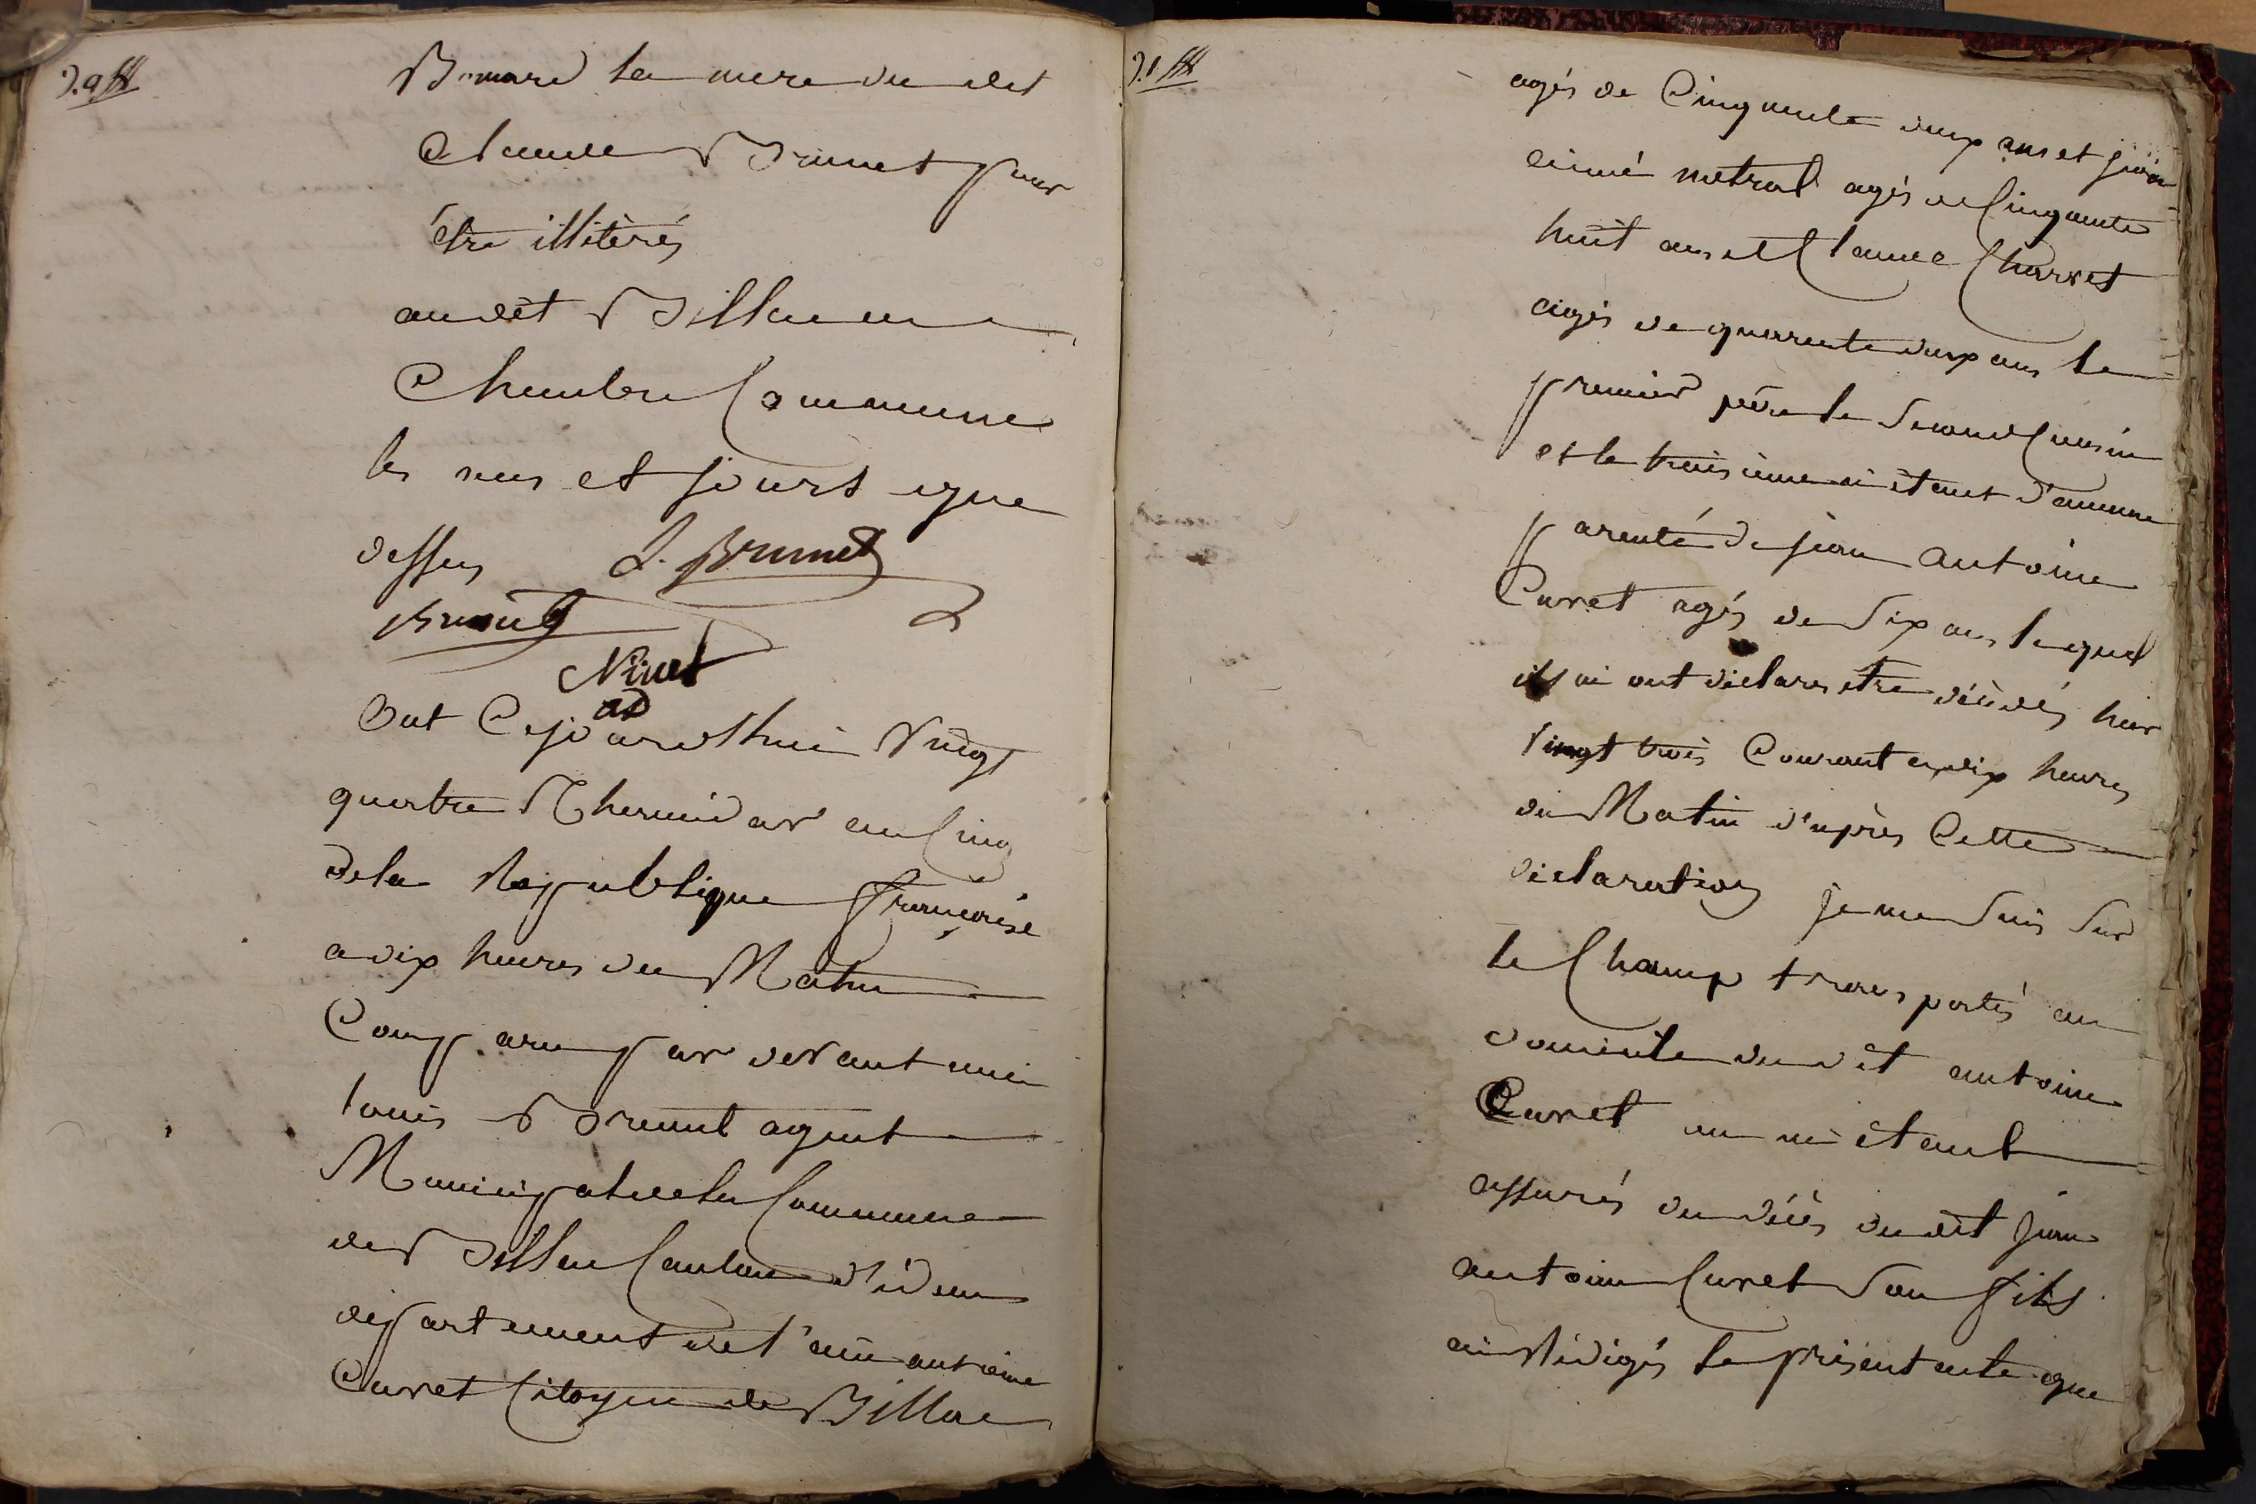 Bernard la mere du dit
Claude Brunet pour
être illitèrés
au dit Billiat en
Chambre Commune
les mois et jours que
dessus L. Brunet
Brunet
Ninet
ad
Dut Cejourdhui Vingt
quatre Thermidor an Cinq
dela Republique françoise
a dix heures du Matin
Comparu par devant moi
louis Brunet agent
Municipal de la Commune
de Billia Canton d'idem
département de l'ain antoine
Curet Citoyen de Billia
agés de Cinquante deux ans et jean
aimé metral agés de Cinquante
huit ans et Claude Charvet
agés de quarente deux ans le
premier père le Second Cousin
et le troisieme n'étant d'aucune
parenté de jean antoine
Curet agés de Six ans lequel
ils m ont déclarés etre décédés hier
vingt trois Courant a dix heures
du Matin d'après Cette
déclaration je me Suis Sur
le Champ transportés au
domicile du dit antoine
Curet ou m'étant
assurés du décès du dit jean
antoine Curet Son fils
ai Rédigés le présent acte que